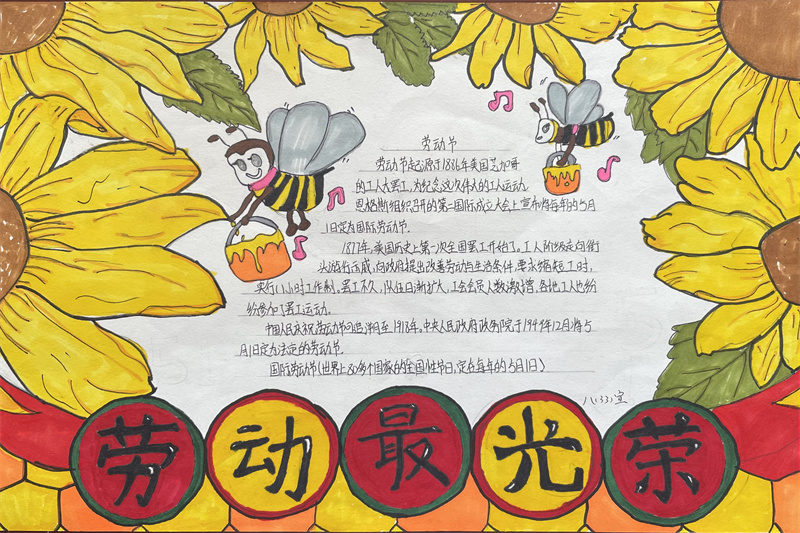 劳动节
劳动节起源于1886年美国芝加哥
的工人大罢工，为纪念这次伟大的工人运动，
恩格斯组织召开的第一国际成立大会上宣布将每年的5月
1日定为国际劳动节.
1877年，美国历史上第一次全国罢工开始了，工人阶级走向街
头游行示威，向政府提出改善劳动与生活条件，要求缩短工时，
实行八小时工作制。罢工不久，队伍日渐扩大，工会会员人数激增，各地工人也纷
纷参加了罢工运动.
中国人民庆祝劳动节可追溯至1918年，中央人民政府政务院于1949年12月将5
月1日定为法定的劳动节.
国际劳动节(世界上80多个国家的全国性节日，定在每年的5月1日)
劳动最光荣